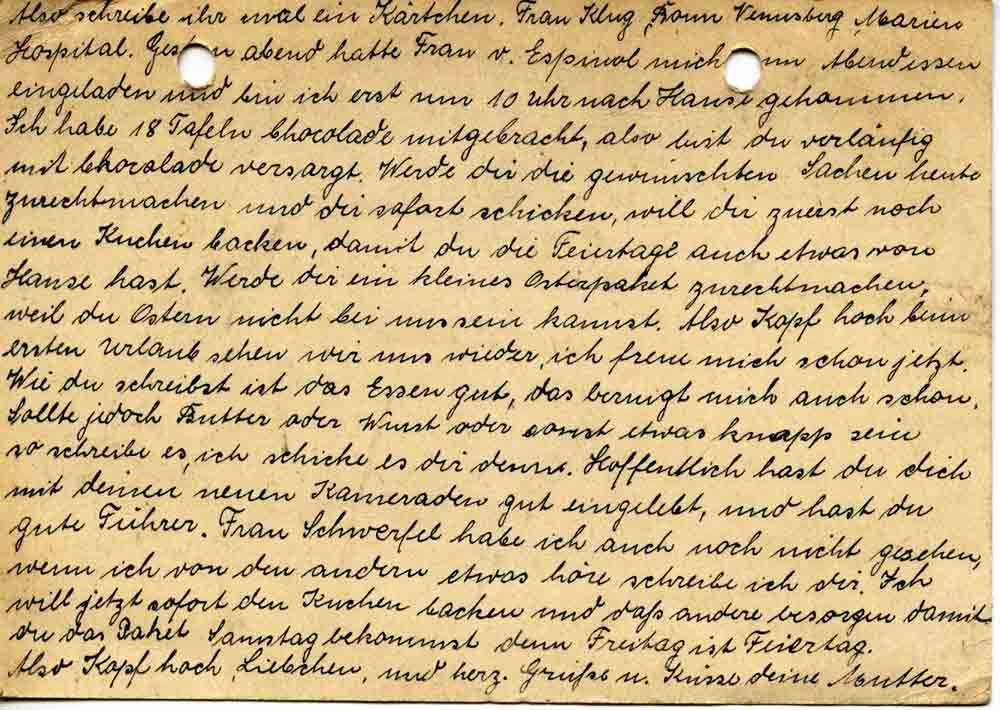 Also schreibe ihr mal ein Kärtchen. Frau Klug, Bonn Venusberg, Marien
Hospital. Gestern abend hatte Frau v. Espinol mich zum Abendessen
eingeladen und bin ich erst um 10 Uhr nach Hause gekommen.
Ich habe 18 Tafeln Chocolade mitgebracht, also bist du vorläufig
mit Chocolade versorgt. Werde dir die gewünschten Sachen heute
zurechtmachen und dir sofort schicken, will dir zuerst noch
einen Kuchen backen, damit du die Feiertage auch etwas von
Hause hast. Werde dir ein kleines Osterpaket zurechtmachen,
weil du Ostern nicht bei uns sein kannst. Also Kopf hoch beim
ersten Urlaub sehen wir uns wieder, ich freue mich schon jetzt.
Wie du schreibst ist das Essen gut, das beruigt mich auch schon.
Sollte jedoch Butter oder Wurst oder sonst etwas knapp sein
so schreibe es, ich schicke es dir denn. Hoffentlich hast du dich
mit deinen neuen Kameraden gut eingelebt, und hast du
gute Führer. Frau Schwerfel habe ich auch noch nicht gesehen,
wenn ich von den andern etwas höre schreibe ich dir. Ich
will jetzt sofort den Kuchen backen und daß andere besorgen damit
du das Paket Samstag bekommst denn Freitag ist Feiertag.
Also Kopf hoch, Liebchen, und herz. Grüße u. Küsse deine Mutter.